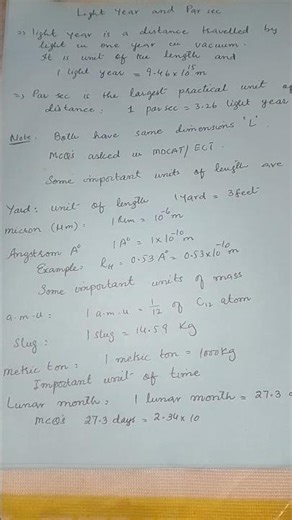 Light Year and Par sec
=> light year is a distance travelled by
light in one year in vacuum.
It is unit of the length and
1 light year = 9.46x10¹⁵m
=> Par sec is the largest practical unit of
distance; 1 par sec = 3.26 light year
Note. Both have same dimensions 'L'.
MCQ's asked in MDCAT/ECT.
Some important units of length are
Yard: unit of length 1 Yard = 3 feet
micron (µm): = 10⁻⁶ m
Angstrom A° 1 A° = 1x10⁻¹⁰ m
Example: = 0.53 A° = 0.53x10⁻¹⁰
Some important units of mass
a.m.u: 1 a.m.u = 1/12 of C12 atom
Slug: 1 slug = 14.59 Kg
metric ton: 1 metric ton = 1000kg
Important unit of time
Lunar month: 1 lunar month = 27.3
MCQ's 27.3 days = 2.34x10